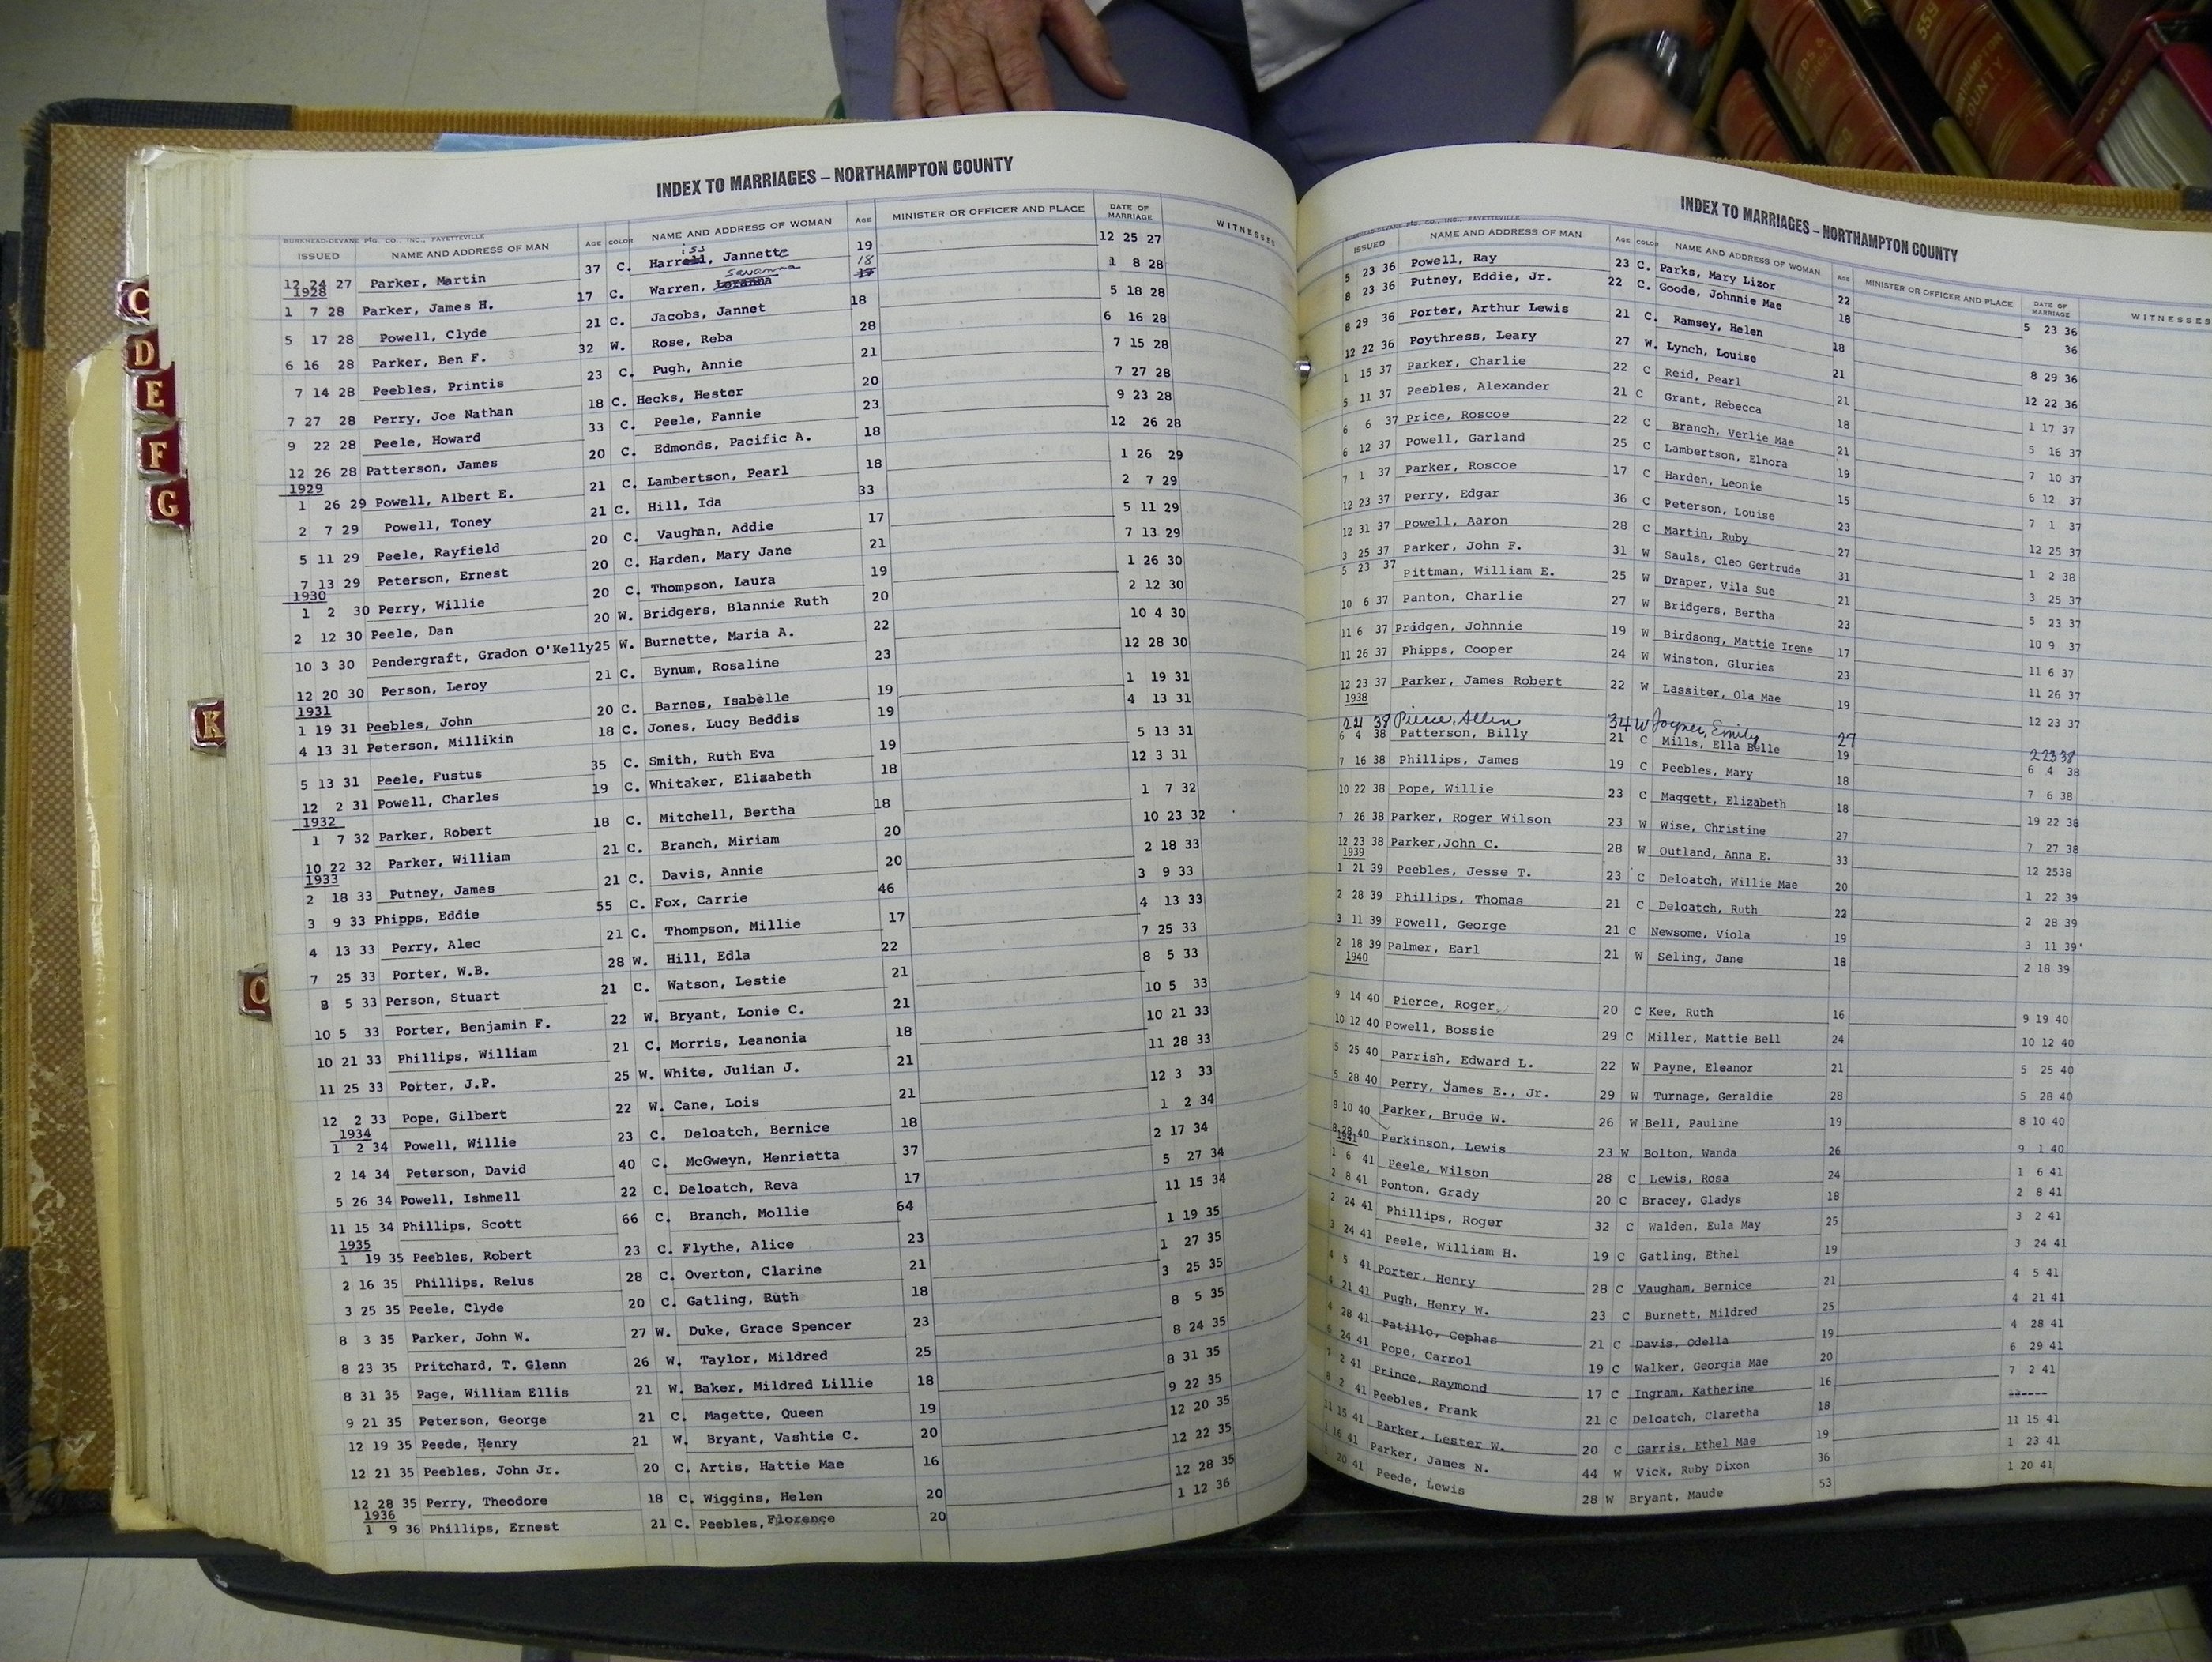 INDEX TO MARRIAGES – NORTHAMPTON COUNTY
BURKHEAD-DEVANE P'T'G. CO., INC., FAYETTEVILLE
ISSUED NAME AND ADDRESS OF MAN AGE COLOR NAME AND ADDRESS OF WOMAN AGE MINISTER OR OFFICER AND PLACE DATE OF MARRIAGE WITNESSES
12 24 27 Parker, Martin 37 C. Harriss, Jannette 19 12 25 27
1928
1 7 28 Parker, James H. 17 C. Warren, Savanna 18 1 8 28
5 17 28 Powell, Clyde 21 C. Jacobs, Jannet 18 5 18 28
6 16 28 Parker, Ben F. 32 W. Rose, Reba 28 6 16 28
7 14 28 Peebles, Printis 23 C. Pugh, Annie 21 7 15 28
7 27 28 Perry, Joe Nathan 18 C. Hecks, Hester 20 7 27 28
9 22 28 Peele, Howard 33 C. Peele, Fannie 23 9 23 28
12 26 28 Patterson, James 20 C. Edmonds, Pacific A. 18 12 26 28
1929
1 26 29 Powell, Albert E. 21 C. Lambertson, Pearl 18 1 26 29
2 7 29 Powell, Toney 21 C. Hill, Ida 33 2 7 29
5 11 29 Peele, Rayfield 20 C. Vaughan, Addie 17 5 11 29
7 13 29 Peterson, Ernest 20 C. Harden, Mary Jane 21 7 13 29
1930
1 2 30 Perry, Willie 20 C. Thompson, Laura 19 1 26 30
2 12 30 Peele, Dan 20 W. Bridgers, Blannie Ruth 20 2 12 30
10 3 30 Pendergraft, Gradon O'Kelly 25 W. Burnette, Maria A. 22 10 4 30
12 20 30 Person, Leroy 21 C. Bynum, Rosaline 23 12 28 30
1931
1 19 31 Peebles, John 20 C. Barnes, Isabelle 19 1 19 31
4 13 31 Peterson, Millikin 18 C. Jones, Lucy Beddis 19 4 13 31
5 13 31 Peele, Fustus 35 C. Smith, Ruth Eva 19 5 13 31
12 2 31 Powell, Charles 19 C. Whitaker, Elizabeth 18 12 3 31
1932
1 7 32 Parker, Robert 18 C. Mitchell, Bertha 18 1 7 32
10 22 32 Parker, William 21 C. Branch, Miriam 20 10 23 32
1933
2 18 33 Putney, James 21 C. Davis, Annie 20 2 18 33
3 9 33 Phipps, Eddie 55 C. Fox, Carrie 46 3 9 33
4 13 33 Perry, Alec 21 C. Thompson, Millie 17 4 13 33
7 25 33 Porter, W.B. 28 W. Hill, Edla 22 7 25 33
8 5 33 Person, Stuart 21 C. Watson, Lestie 21 8 5 33
10 5 33 Porter, Benjamin F. 22 W. Bryant, Lonie C. 21 10 5 33
10 21 33 Phillips, William 21 C. Morris, Leanonia 18 10 21 33
11 25 33 Porter, J.P. 25 W. White, Julian J. 21 11 28 33
12 2 33 Pope, Gilbert 22 W. Cane, Lois 21 12 3 33
1934
1 2 34 Powell, Willie 23 C. Deloatch, Bernice 18 1 2 34
2 14 34 Peterson, David 40 C. McGweyn, Henrietta 37 2 17 34
5 26 34 Powell, Ishmell 22 C. Deloatch, Reva 17 5 27 34
11 15 34 Phillips, Scott 66 C. Branch, Mollie 64 11 15 34
1935
1 19 35 Peebles, Robert 23 C. Flythe, Alice 23 1 19 35
2 16 35 Phillips, Relus 28 C. Overton, Clarine 21 1 27 35
3 25 35 Peele, Clyde 20 C. Gatling, Ruth 18 3 25 35
8 3 35 Parker, John W. 27 W. Duke, Grace Spencer 23 8 5 35
8 23 35 Pritchard, T. Glenn 26 W. Taylor, Mildred 25 8 24 35
8 31 35 Page, William Ellis 21 W. Baker, Mildred Lillie 18 8 31 35
9 21 35 Peterson, George 21 C. Magette, Queen 19 9 22 35
12 19 35 Peede, Henry 21 W. Bryant, Vashtie C. 20 12 20 35
12 21 35 Peebles, John Jr. 20 C. Artis, Hattie Mae 16 12 22 35
12 28 35 Perry, Theodore 18 C. Wiggins, Helen 20 12 28 35
1936
1 9 36 Phillips, Ernest 21 C. Peebles, Florence 20 1 12 36
INDEX TO MARRIAGES – NORTHAMPTON COUNTY
BURKHEAD-DEVANE P'T'G. CO., INC., FAYETTEVILLE
ISSUED NAME AND ADDRESS OF MAN AGE COLOR NAME AND ADDRESS OF WOMAN AGE MINISTER OR OFFICER AND PLACE DATE OF MARRIAGE WITNESSES
5 23 36 Powell, Ray 23 C. Parks, Mary Lizor 22 5 23 36
8 23 36 Putney, Eddie, Jr. 22 C. Goode, Johnnie Mae 18 36
8 29 36 Porter, Arthur Lewis 21 C. Ramsey, Helen 18 8 29 36
12 22 36 Poythress, Leary 27 W. Lynch, Louise 21 12 22 36
1 15 37 Parker, Charlie 22 C Reid, Pearl 21 1 17 37
5 11 37 Peebles, Alexander 21 C Grant, Rebecca 18 5 16 37
6 6 37 Price, Roscoe 22 C Branch, Verlie Mae 21 7 10 37
6 12 37 Powell, Garland 25 C Lambertson, Elnora 19 6 12 37
7 1 37 Parker, Roscoe 17 C Harden, Leonie 15 7 1 37
12 23 37 Perry, Edgar 36 C Peterson, Louise 23 12 25 37
12 31 37 Powell, Aaron 28 C Martin, Ruby 27 1 2 38
3 25 37 Parker, John F. 31 W Sauls, Cleo Gertrude 31 3 25 37
5 23 37 Pittman, William E. 25 W Draper, Vila Sue 21 5 23 37
10 6 37 Panton, Charlie 27 W Bridgers, Bertha 23 10 9 37
11 6 37 Pridgen, Johnnie 19 W Birdsong, Mattie Irene 17 11 6 37
11 26 37 Phipps, Cooper 24 W Winston, Gluries 23 11 26 37
12 23 37 Parker, James Robert 22 W Lassiter, Ola Mae 19 12 23 37
1938
2 21 38 Pierce, Allen 34 W Joyner, Emily 27 2 23 38
6 4 38 Patterson, Billy 21 C Mills, Ella Belle 19 6 4 38
7 16 38 Phillips, James 19 C Peebles, Mary 18 7 6 38
10 22 38 Pope, Willie 23 C Maggett, Elizabeth 18 19 22 38
7 26 38 Parker, Roger Wilson 23 W Wise, Christine 27 7 27 38
12 23 38 Parker,John C. 28 W Outland, Anna E. 33 12 2538
1939
1 21 39 Peebles, Jesse T. 23 C Deloatch, Willie Mae 20 1 22 39
2 28 39 Phillips, Thomas 21 C Deloatch, Ruth 22 2 28 39
3 11 39 Powell, George 21 C Newsome, Viola 19 3 11 39
2 18 39 Palmer, Earl 21 W Seling, Jane 18 2 18 39
1940
9 14 40 Pierce, Roger 20 C Kee, Ruth 16 9 19 40
10 12 40 Powell, Bossie 29 C Miller, Mattie Bell 24 10 12 40
5 25 40 Parrish, Edward L. 22 W Payne, Eleanor 21 5 25 40
5 28 40 Perry, James E., Jr. 29 W Turnage, Geraldie 28 5 28 40
8 10 40 Parker, Bruce W. 26 W Bell, Pauline 19 8 10 40
8 28 40 Perkinson, Lewis 23 W Bolton, Wanda 26 9 1 40
1941
1 6 41 Peele, Wilson 28 C Lewis, Rosa 24 1 6 41
2 8 41 Ponton, Grady 20 C Bracey, Gladys 18 2 8 41
2 24 41 Phillips, Roger 32 C Walden, Eula May 25 3 2 41
3 24 41 Peele, William H. 19 C Gatling, Ethel 19 3 24 41
4 5 41 Porter, Henry 28 C Vaugham, Bernice 21 4 5 41
4 21 41 Pugh, Henry W. 23 C Burnett, Mildred 25 4 21 41
4 28 41 Patillo, Cephas 21 C Davis, Odella 19 4 28 41
6 24 41 Pope, Carrol 19 C Walker, Georgia Mae 20 6 29 41
7 2 41 Prince, Raymond 17 C Ingram, Katherine 16 7 2 41
8 2 41 Peebles, Frank 21 C Deloatch, Claretha 18
11 15 41 Parker, Lester W. 20 C Garris, Ethel Mae 19 11 15 41
1 16 41 Parker, James N. 44 W Vick, Ruby Dixon 36 1 23 41
1 20 41 Peede, Lewis 28 W Bryant, Maude 53 1 20 41
C
D
E
F
G
K
Q
559
NORTHAMPTON
COUNTY